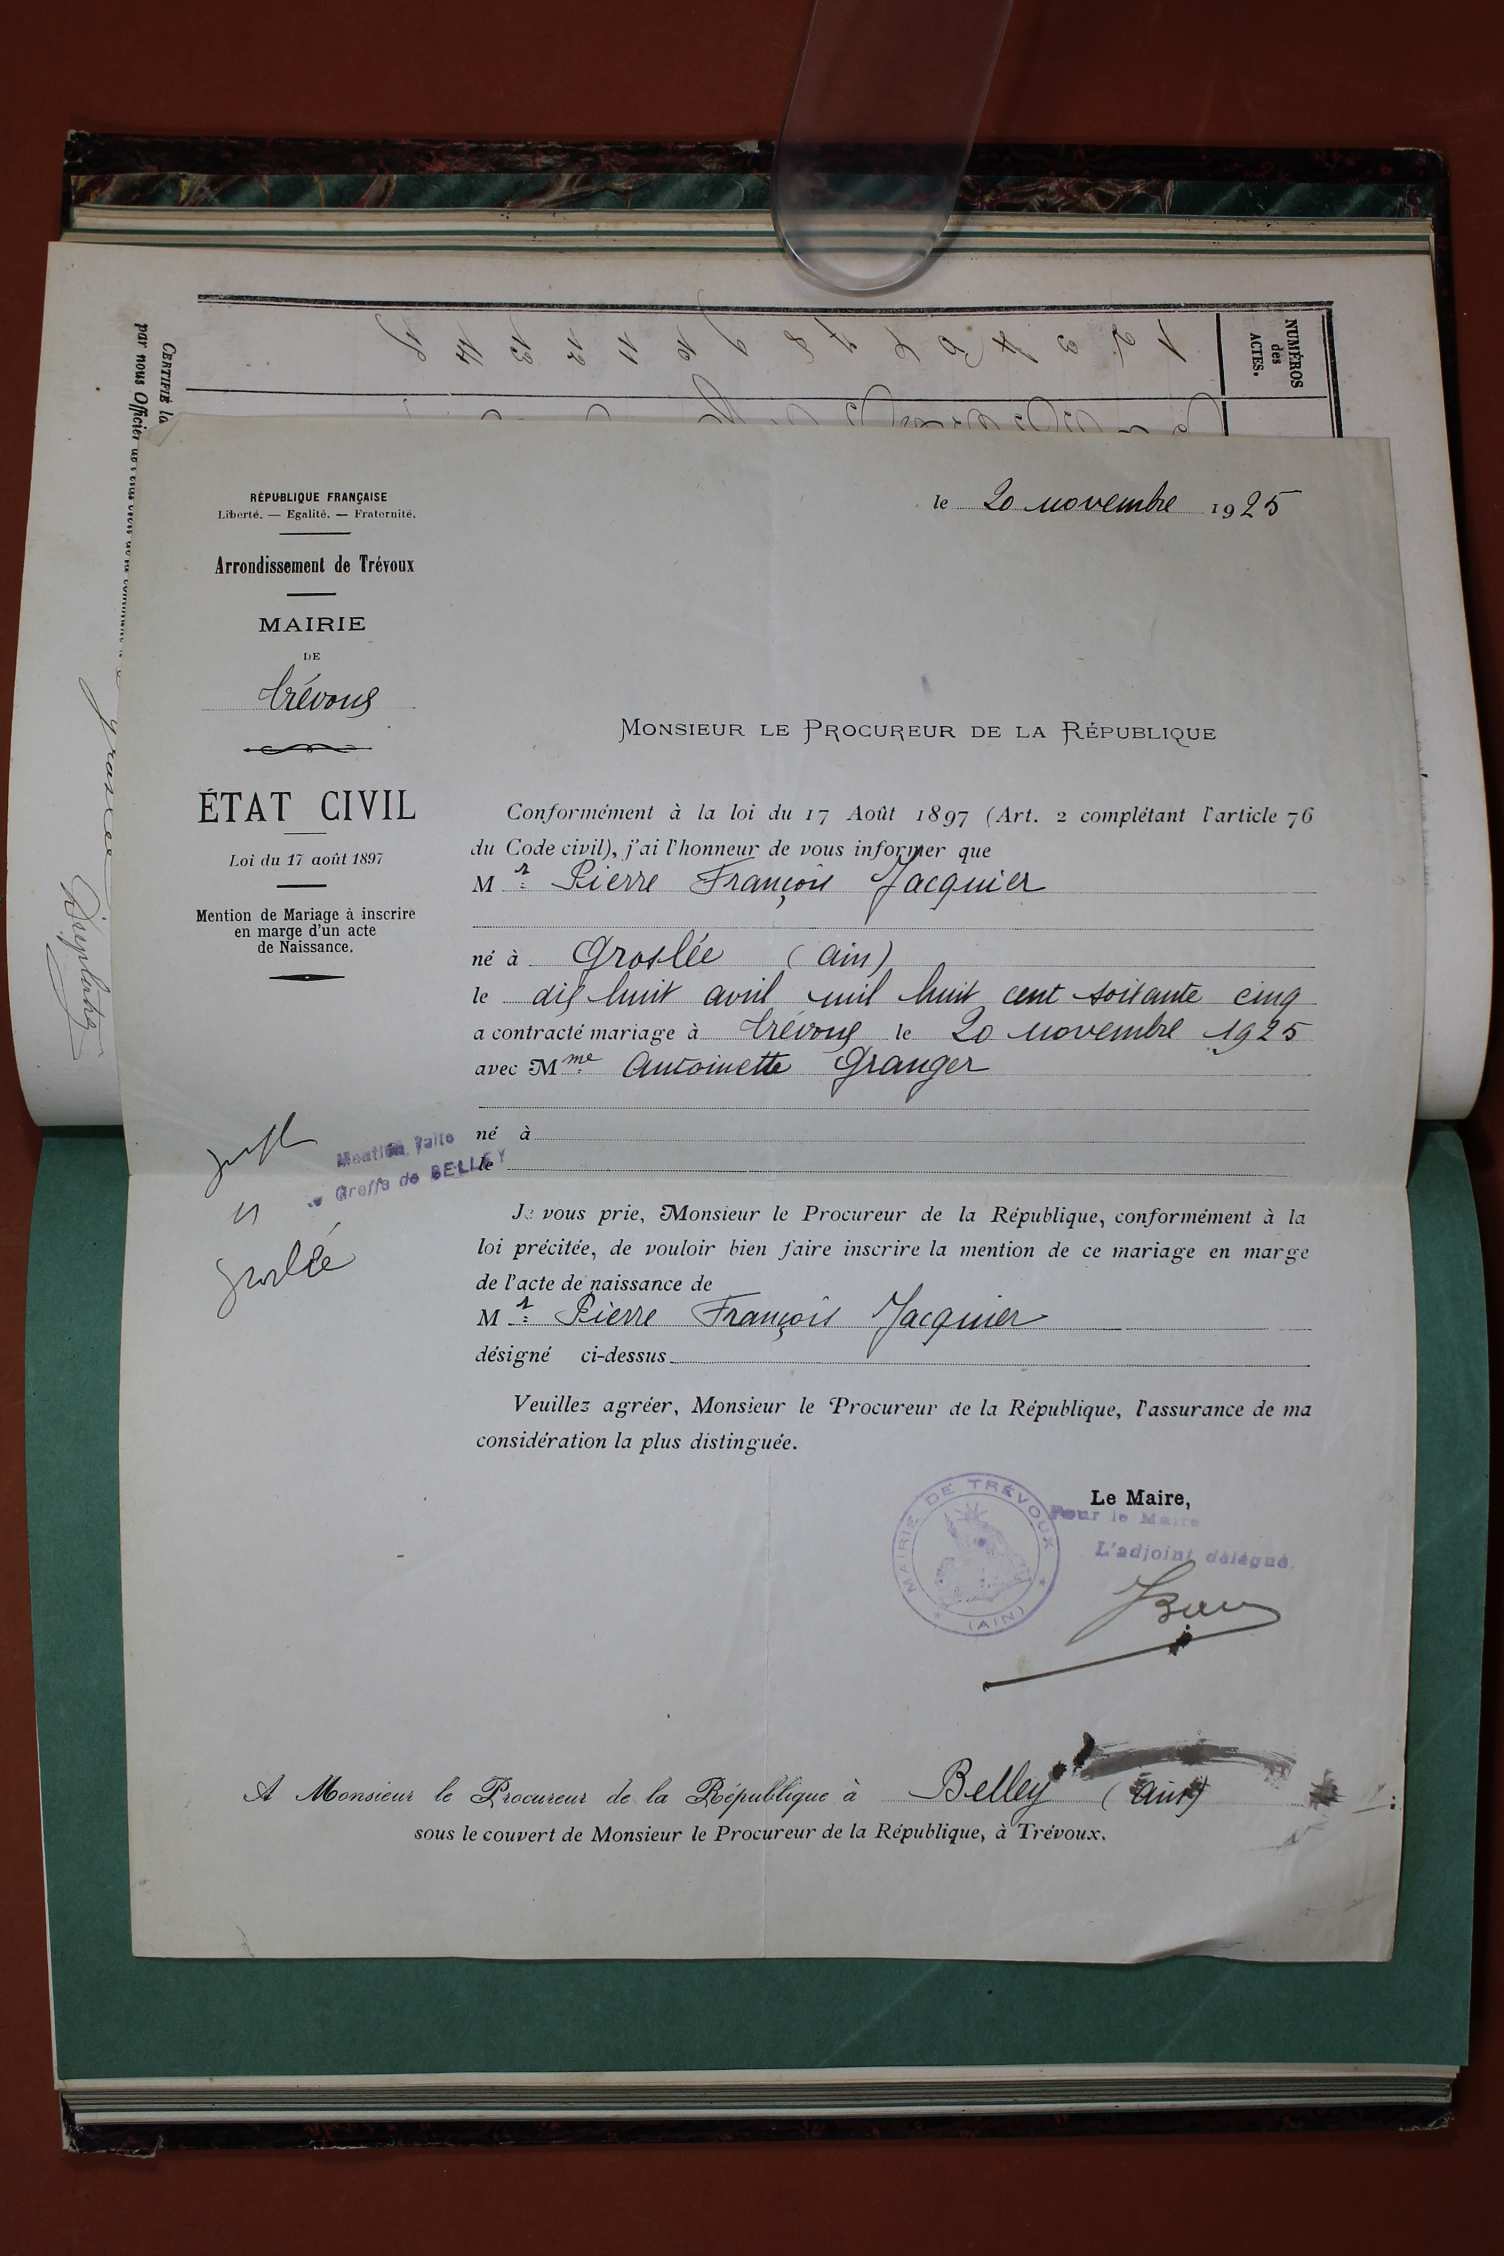 NUMÉROS
des
ACTES.
1
2
3
4
5
6
7
8
9
10
11
12
13
14
15
CERTIFIÉ la
par nous Officier
RÉPUBLIQUE FRANÇAISE
Liberté. — Egalité. — Fraternité.
Arrondissement de Trévoux
MAIRIE
DE
Trévoux
ÉTAT CIVIL
Loi du 17 août 1897
Mention de Mariage à inscrire
en marge d'un acte
de Naissance.
le 20 novembre 1925
MONSIEUR LE PROCUREUR DE LA RÉPUBLIQUE
Conformément à la loi du 17 Août 1897 (Art. 2 complétant l'article 76
du Code civil), j'ai l'honneur de vous informer que
Mr Pierre François Jacquier
né à Groslée (Ain)
le dix huit avril mil huit cent soixante cinq
a contracté mariage à Trévoux le 20 novembre 1925
avec Mme Antoinette Granger
né à
le
Mention faite
Greffe de BELLEY
Groslée
Je vous prie, Monsieur le Procureur de la République, conformément à la
loi précitée, de vouloir bien faire inscrire la mention de ce mariage en marge
de l'acte de naissance de
Mr Pierre François Jacquier
désigné ci-dessus
Veuillez agréer, Monsieur le Procureur de la République, l'assurance de ma
considération la plus distinguée.
Le Maire,
Pour le Maire
L'adjoint délégué,
MAIRIE DE TRÉVOUX
(AIN)
A Monsieur le Procureur de la République à Belley (Ain)
sous le couvert de Monsieur le Procureur de la République, à Trévoux.